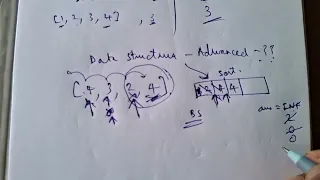 [1, 2, 3, 4] , 3
3
Data structure - Advanced - ??
sort.
[4, 3, 2, 4]
4 4
BS
ans = INF
2
0
0